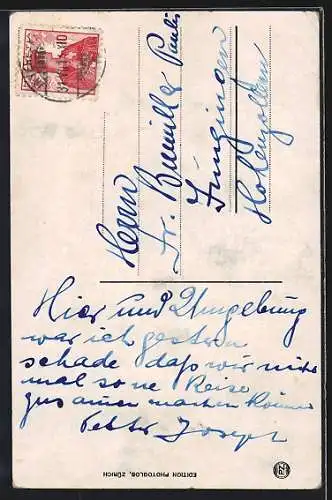 Herrn
Fr. Bumiller Pauli
Jungingen
Hohenzollern
Hier und Umgebung
war ich gestern
schade daß wir nicht
mal so ne Reise
zusammen machen können
Vetter Joseph
EDITION PHOTOGLOB, ZÜRICH